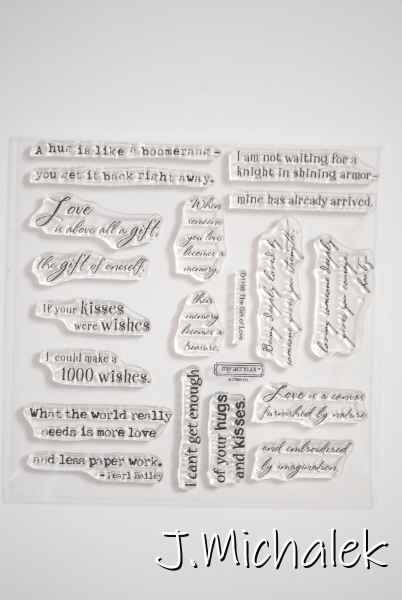 A hug is like a boomerang -
you get it back right away.
I am not waiting for a
knight in shining armor -
mine has already arrived.
Love
is above all a gift,
the gift of oneself.
When
someone
you love
becomes a
memory,
Their
memory
becomes a
treasure.
Being deeply loved by
someone gives you strength,
loving someone deeply
gives you courage.
If your kisses
were wishes
I could make a
1000 wishes.
What the world really
needs is more love
and less paper work.
- Pearl Bailey
I can't get enough
of your hugs
and kisses.
Love is a canvas
furnished by nature
and embroidered
by imagination.
J.Michalek